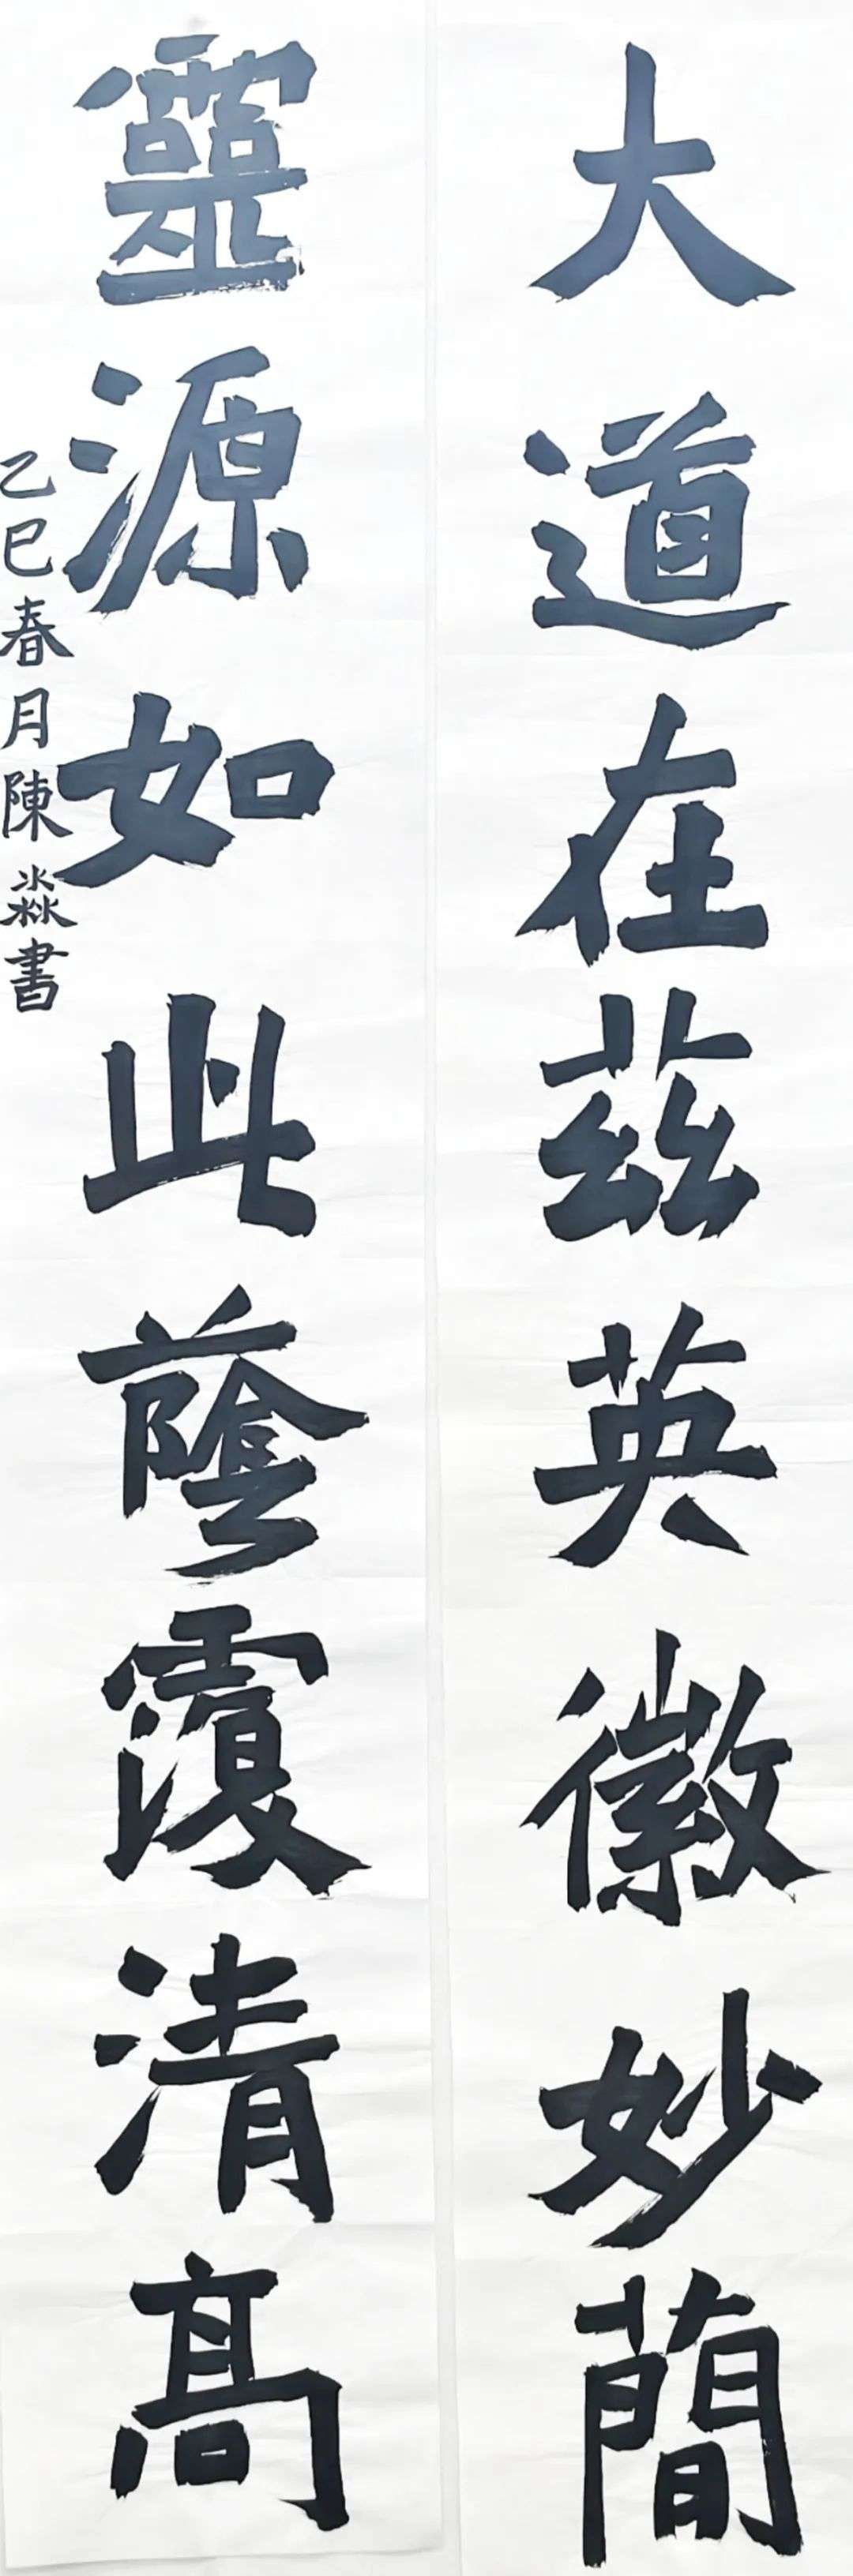 大道在茲英徽妙簡
靈源如此蔭覆清高
乙巳春月陳淼書